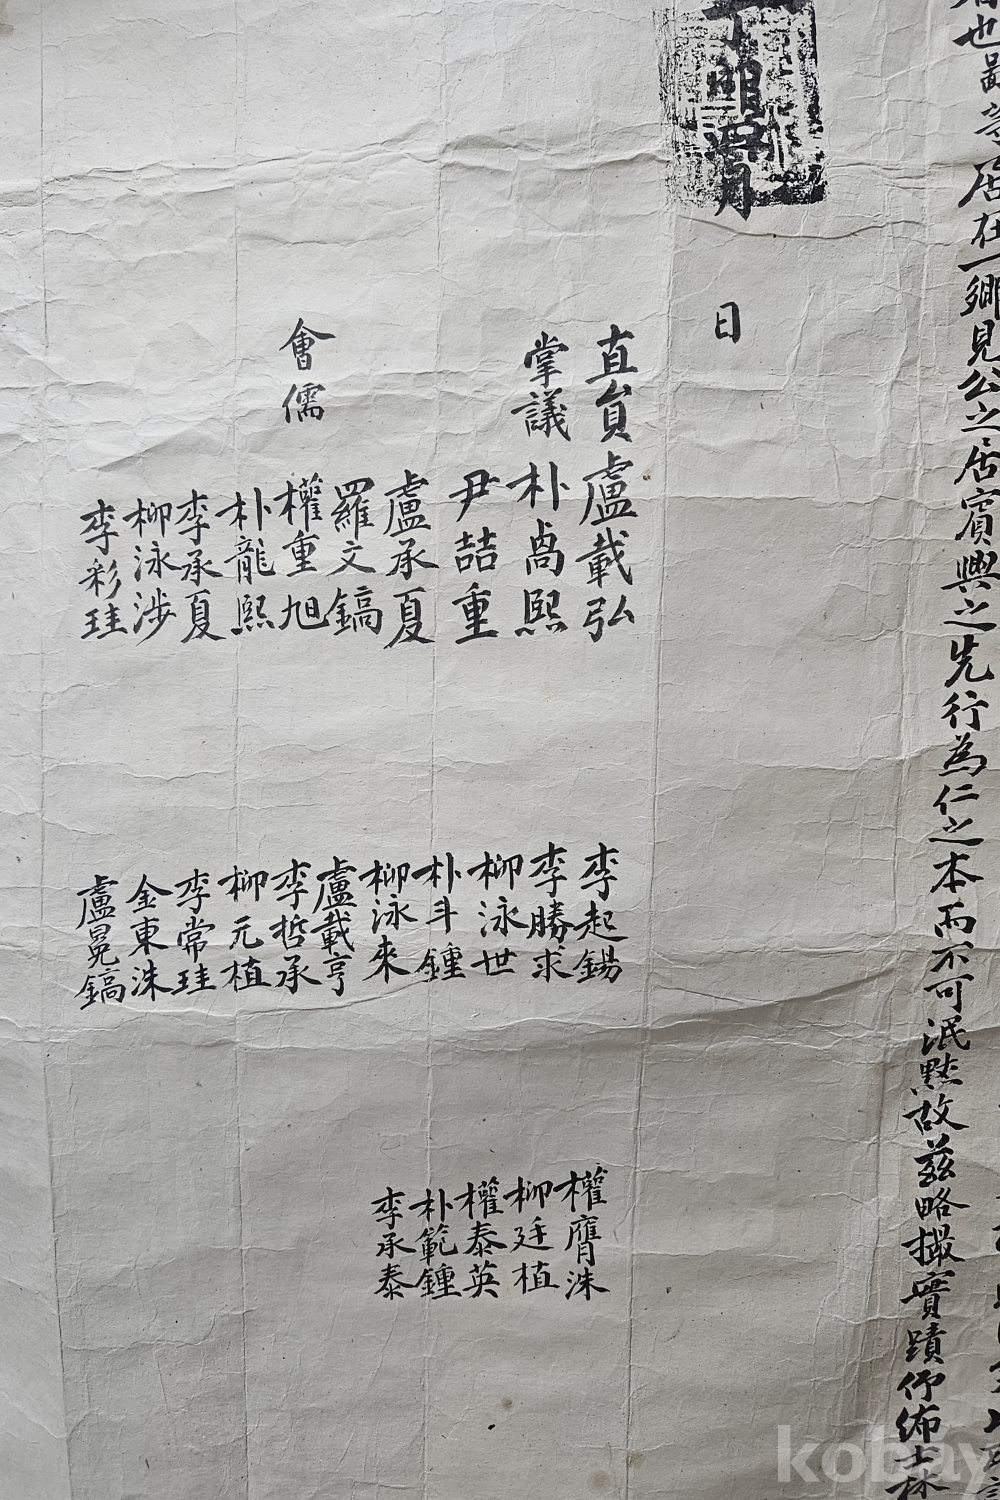 居在一鄉見公之居賓興之先行為仁之本而不可泯黙故玆略撮實蹟伻佈士林
月
日
直員 盧載弘
掌議 朴卨熙
尹喆重
盧承夏
羅文鎬
會儒 權重旭
朴龍熙
李承夏
柳泳涉
李彩珪
李起錫
李勝求
柳泳世
朴斗鍾
柳泳來
盧載亨
李哲承
柳元植
李常珪
金東洙
盧晃鎬
權膺洙
柳廷植
權泰英
朴範鍾
李承泰
kobay